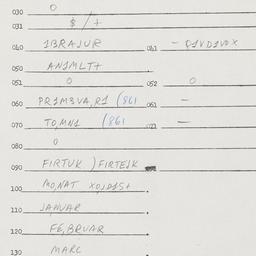 030 0
031 $ / +
040 1BRAJUR 041 - Q1VD1VOX
050 AN1MLT+
051 0 052 0
060 PR1M3VA,R1 (861 061 -
070 TO,MN1 (861 071 -
080 0
090 FIRTUK ) FIRTEJK
100 MO,NAT XO,DDS+
110 JANUAR
120 FE,BRUAR
130 MARC